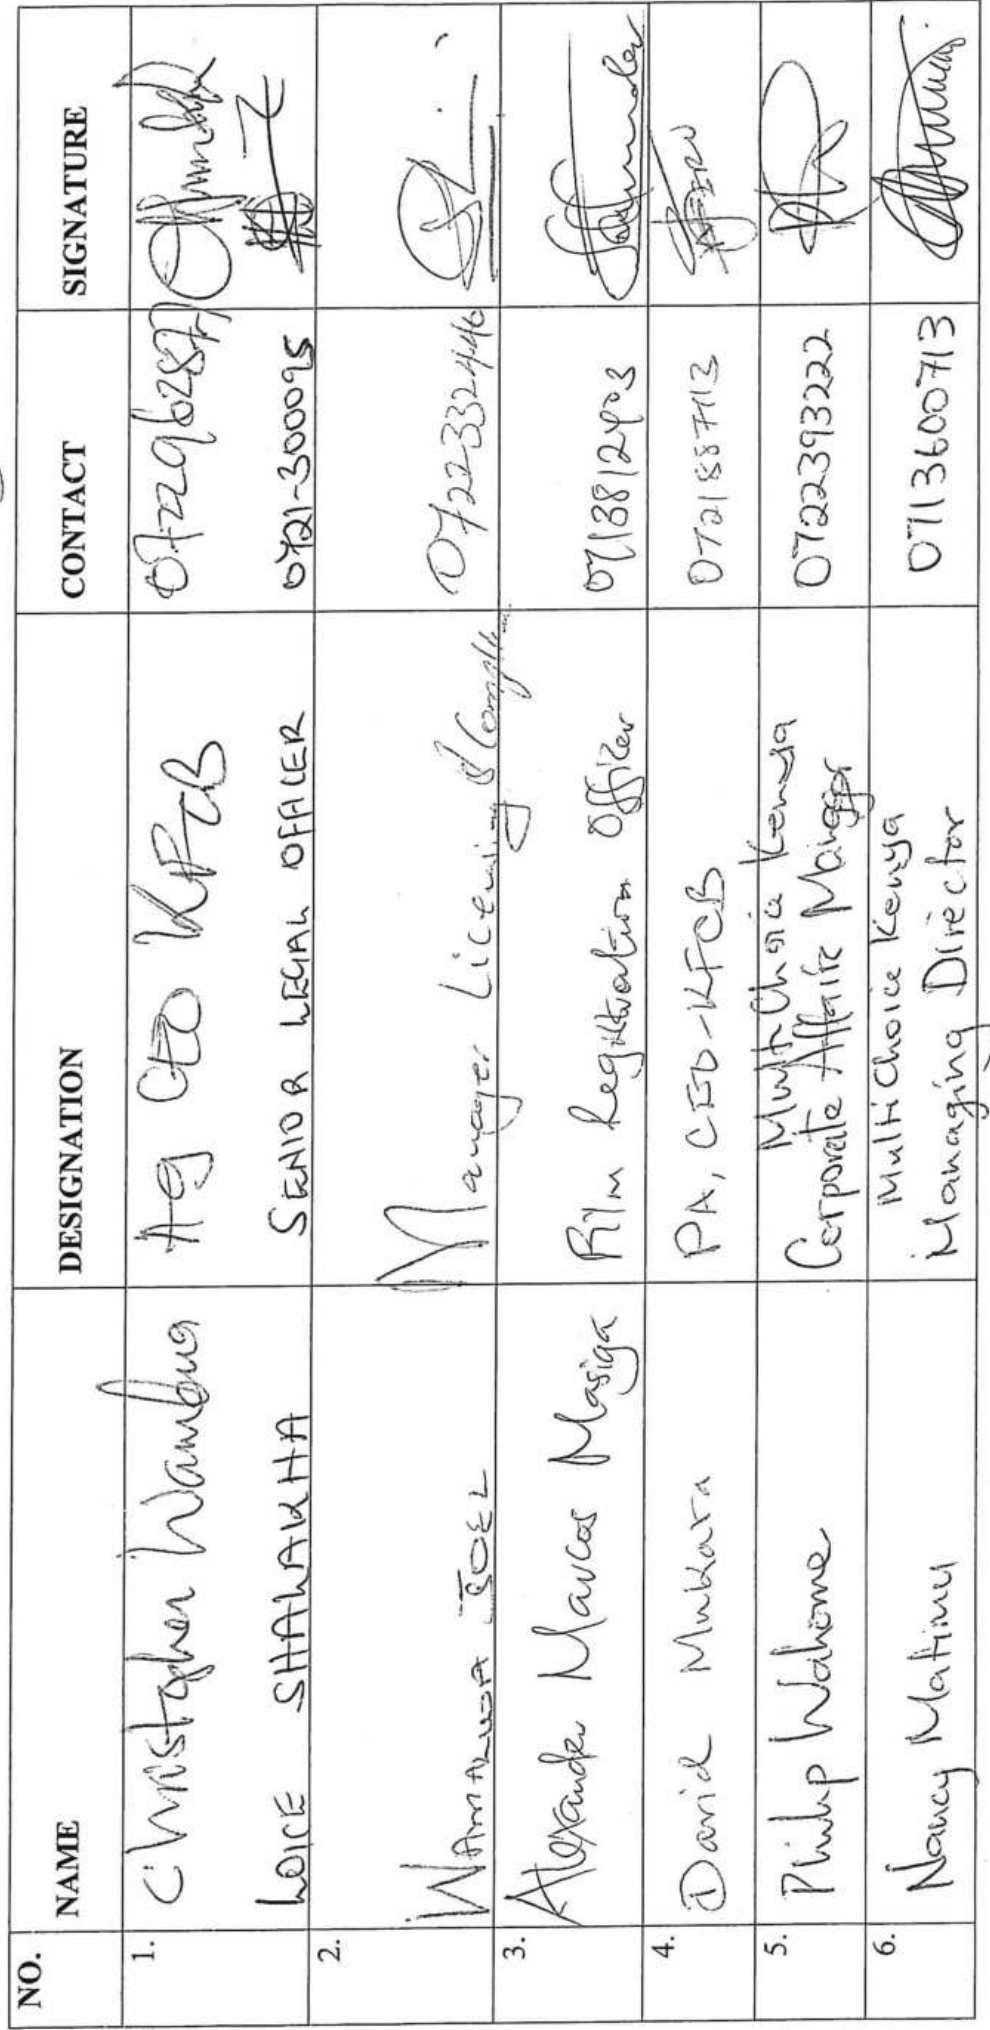 NO. NAME DESIGNATION CONTACT SIGNATURE
1. Christopher Wambua Ag CEO KFCB 0722962877
LOICE SHALAKHA SENIOR LEGAL OFFICER 0721-300095
2. WAMALWA JOEL Manager Licensing & Compliance 0722332446
3. Alexander Marcos Masiga Film Registration Officer
4. David Mukara PA, CEO-KFCB 0721887713
5. Philip Wahome MultiChoice Kenya
Corporate Affairs Manager 0722393222
6. Nancy Matimu MultiChoice Kenya
Managing Director 0713600713